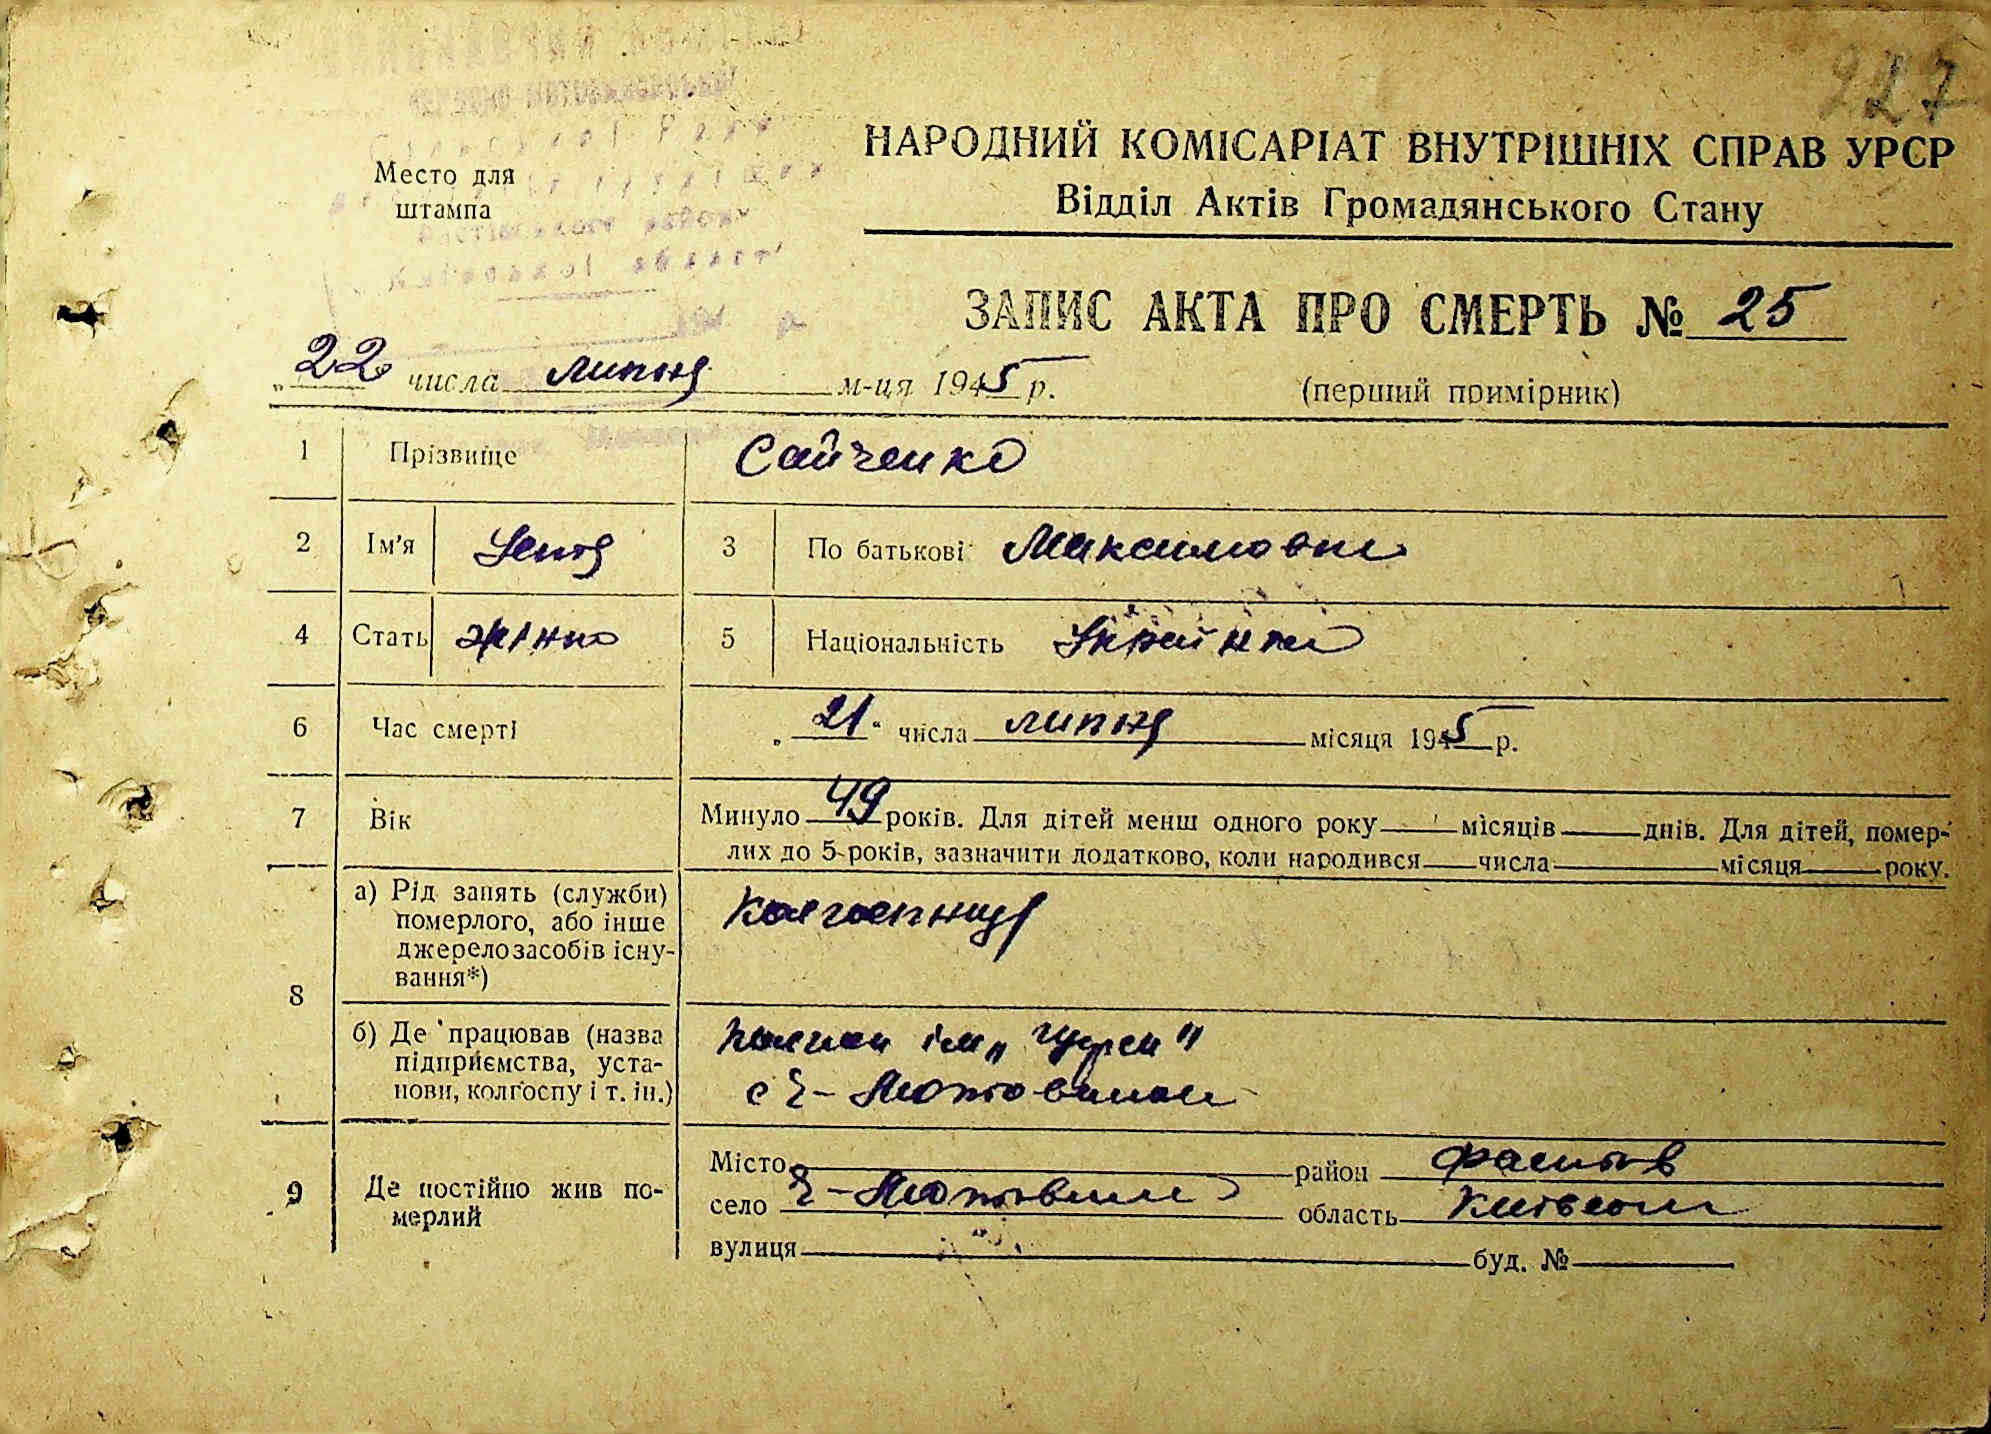 227
НАРОДНИЙ КОМІСАРІАТ ВНУТРІШНІХ СПРАВ УРСР
Відділ Актів Громадянського Стану
Место для
штампа
ЗАПИС АКТА ПРО СМЕРТЬ № 25
„22 числа липня м-ця 1945 р.
(перший примірник)
1 Прізвище Сайченко
2 Ім'я 3 По батькові Максимовна
4 Стать жінка 5 Національність Українка
6 Час смерті „21“ числа липня місяця 1945 р.
7 Вік Минуло 49 років. Для дітей менш одного року місяців днів. Для дітей, помер-
лих до 5 років, зазначити додатково, коли народився числа місяця року.
8 а) Рід занять (служби)
померлого, або інше
джерело засобів існу-
вання*)
Колгоспниця
б) Де працював (назва
підприємства, уста-
нови, колгоспу і т. ін.)
ім „ "
с
9 Де постійно жив по-
мерлий
Місто район Фастов
село область
вулиця буд. №